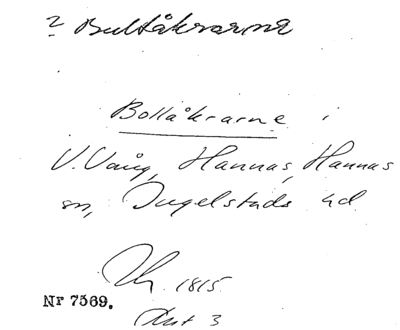 ? Bultåkrarne
Bollåkrarne i
V. Vång, Hannas, Hannas
sn, Ingelstads hd.
1815.
Nr 7569.
Akt 3